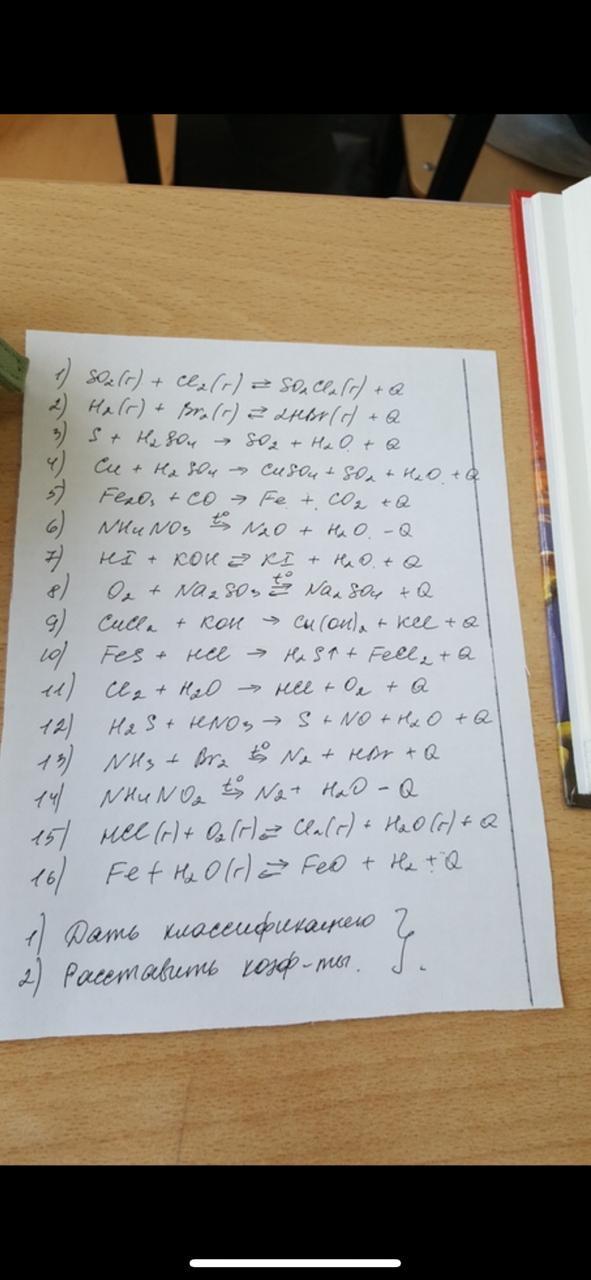 1) SO₂(г) + Cl₂(г) ⇄ SO₂Cl₂(г) + Q
2) H₂(г) + Br₂(г) ⇄ 2HBr(г) + Q
3) S + H₂SO₄ → SO₂ + H₂O + Q
4) Cu + H₂SO₄ → CuSO₄ + SO₂ + H₂O + Q
5) Fe₂O₃ + CO → Fe + CO₂ + Q
6) NH₄NO₃ ⇄ t° N₂O + H₂O - Q
7) HI + KOH ⇄ KI + H₂O + Q
8) O₂ + Na₂SO₃ ⇄ t° Na₂SO₄ + Q
9) CuCl₂ + KOH → Cu(OH)₂ + KCl + Q
10) FeS + HCl → H₂S↑ + FeCl₂ + Q
11) Cl₂ + H₂O → HCl + O₂ + Q
12) H₂S + HNO₃ → S + NO + H₂O + Q
13) NH₃ + Br₂ ⇄ t° N₂ + HBr + Q
14) NH₄NO₂ ⇄ t° N₂ + H₂O - Q
15) HCl(г) + O₂(г) ⇄ Cl₂(г) + H₂O(г) + Q
16) Fe + H₂O(г) ⇄ FeO + H₂ + Q
1) Дать классификацию
2) Расставить коэф-ты.